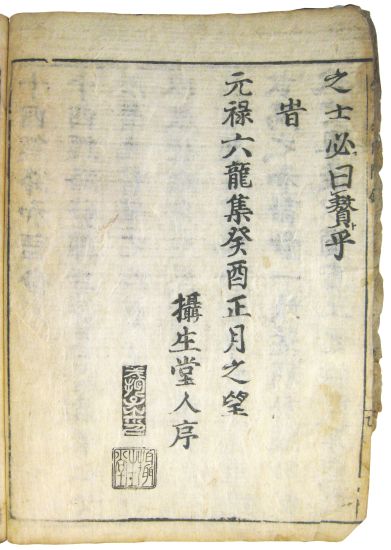 之士必曰贅乎
旹
元禄六龍集癸酉正月之望
攝生堂人序